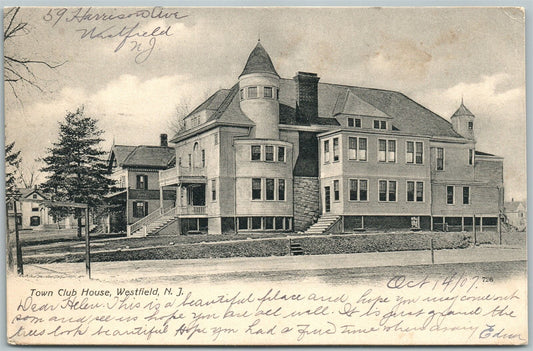 59 Harrison Ave
Westfield
NJ
Town Club House, Westfield, N. J.
Oct 14/07
726
Dear Helen, This is a beautiful place and hope you may come out
soon and see us hope you are all well. It is just grand the
trees look beautiful Hope you had a fine time when away Edna